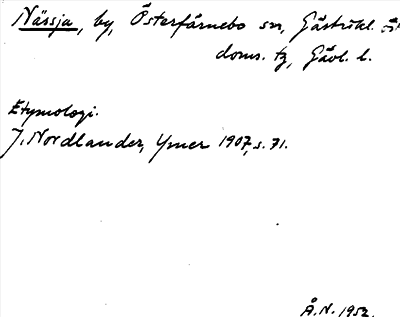 Nässja, by, Österfärnebo sn, Gästrikl. ö
doms. tg, Gävl. l.
Etymologi.
J. Nordlander, Ymer 1907, s. 71.
Å.N. 1952.